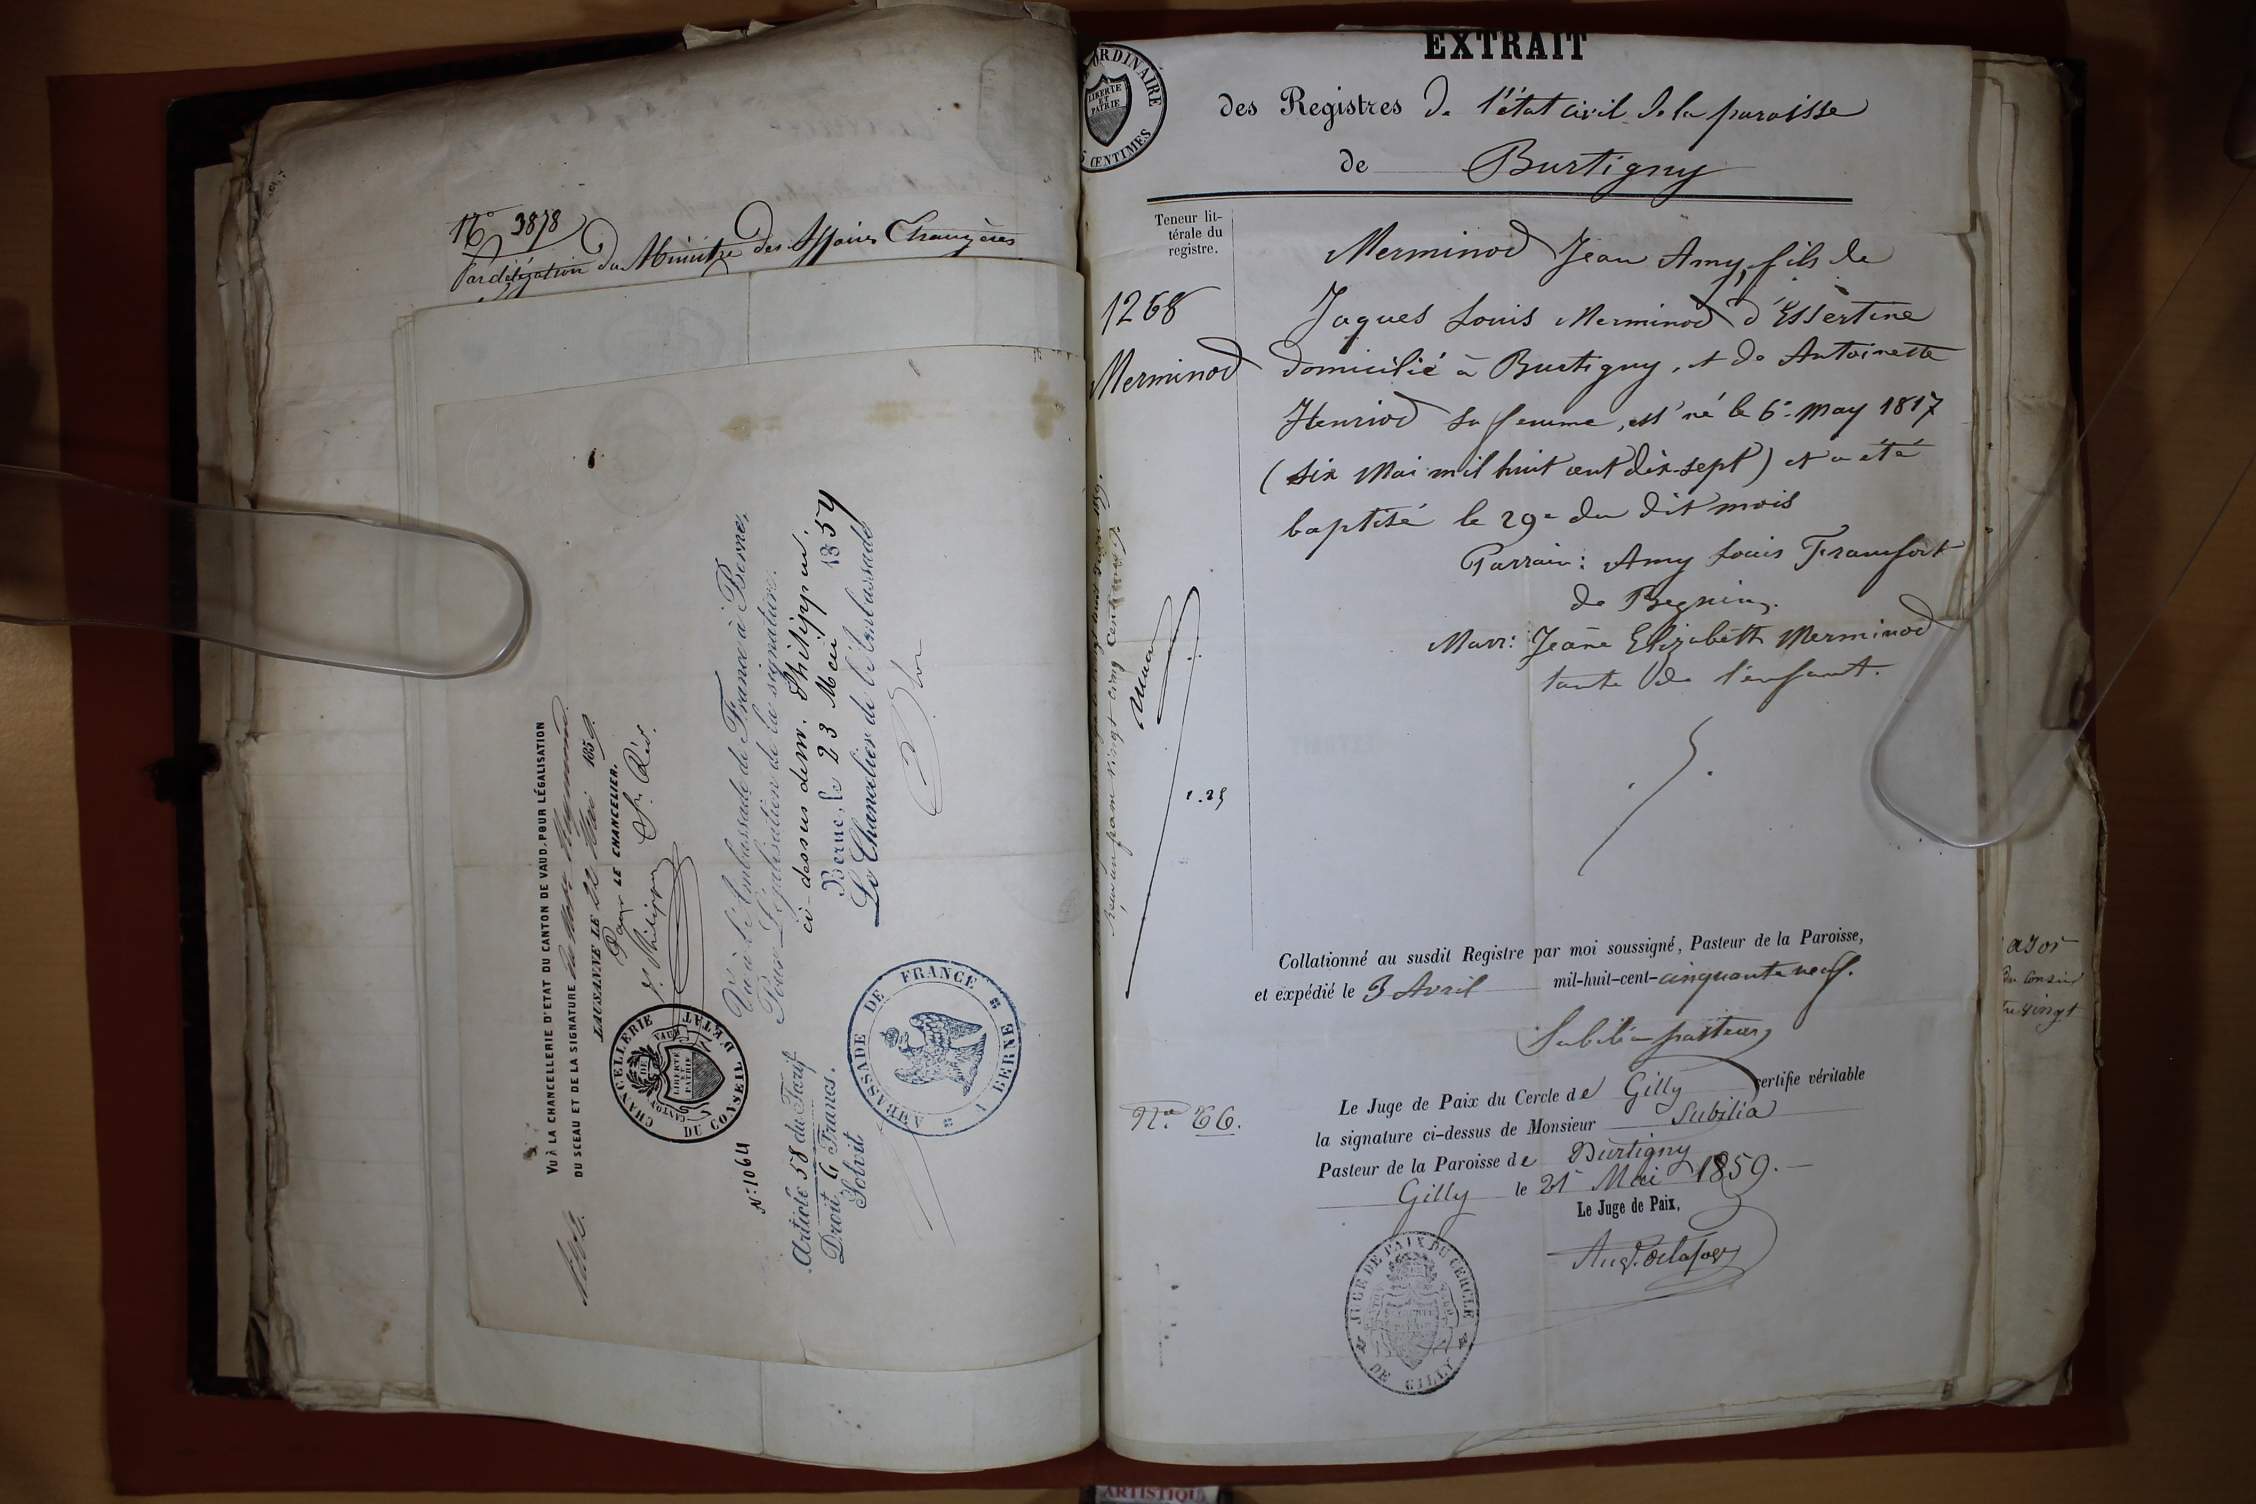 N° 3878
Par délégation du Ministre des Affaires Etrangères
VU À LA CHANCELLERIE D'ETAT DU CANTON DE VAUD, POUR LÉGALISATION
DU SCEAU ET DE LA SIGNATURE
LAUSANNE LE 22 Mai 1859.
Pour LE CHANCELIER,
Philippon
CHANCELLERIE DU CONSEIL D'ETAT
CANTON DE VAUD
LIBERTE ET PATRIE
N° 1064
Vu à l'Ambassade de France à Berne,
Pour Légalisation de la signature
ci-dessus de M. Philippon.
Berne, le 23 Mai 1859
Le Chancelier de l'Ambassade
Article 58 du Tarif
Droit 6 Francs.
Solvit
AMBASSADE DE FRANCE A BERNE
ORDINAIRE
LIBERTE ET PATRIE
CENTIMES
EXTRAIT
des Registres de l'état civil de la paroisse
de Burtigny
Teneur lit-
térale du
registre.
1268
Merminod
Merminod Jean Amy, fils de
Jaques Louis Merminod d'Essertine
domicilié à Burtigny, et de Antoinette
Henriod sa femme, est né le 6e May 1817
(six Mai mil huit cent dix-sept) et a été
baptisé le 29e du dit mois
Parrain: Amy Louis Framfort
de Begnins.
Marr: Jeane Elizabeth Merminod
tante de l'enfant.
vingt cinq centimes
1.25
Collationné au susdit Registre par moi soussigné, Pasteur de la Paroisse,
et expédié le 3 Avril mil-huit-cent-cinquante neuf.
Subilia pasteur
N° 66.
Le Juge de Paix du Cercle de Gilly certifie véritable
la signature ci-dessus de Monsieur Subilia
Pasteur de la Paroisse de Burtigny
Gilly le 21 Mai 1859.
Le Juge de Paix,
JUGE DE PAIX DU CERCLE DE GILLY
ARTISTIQU